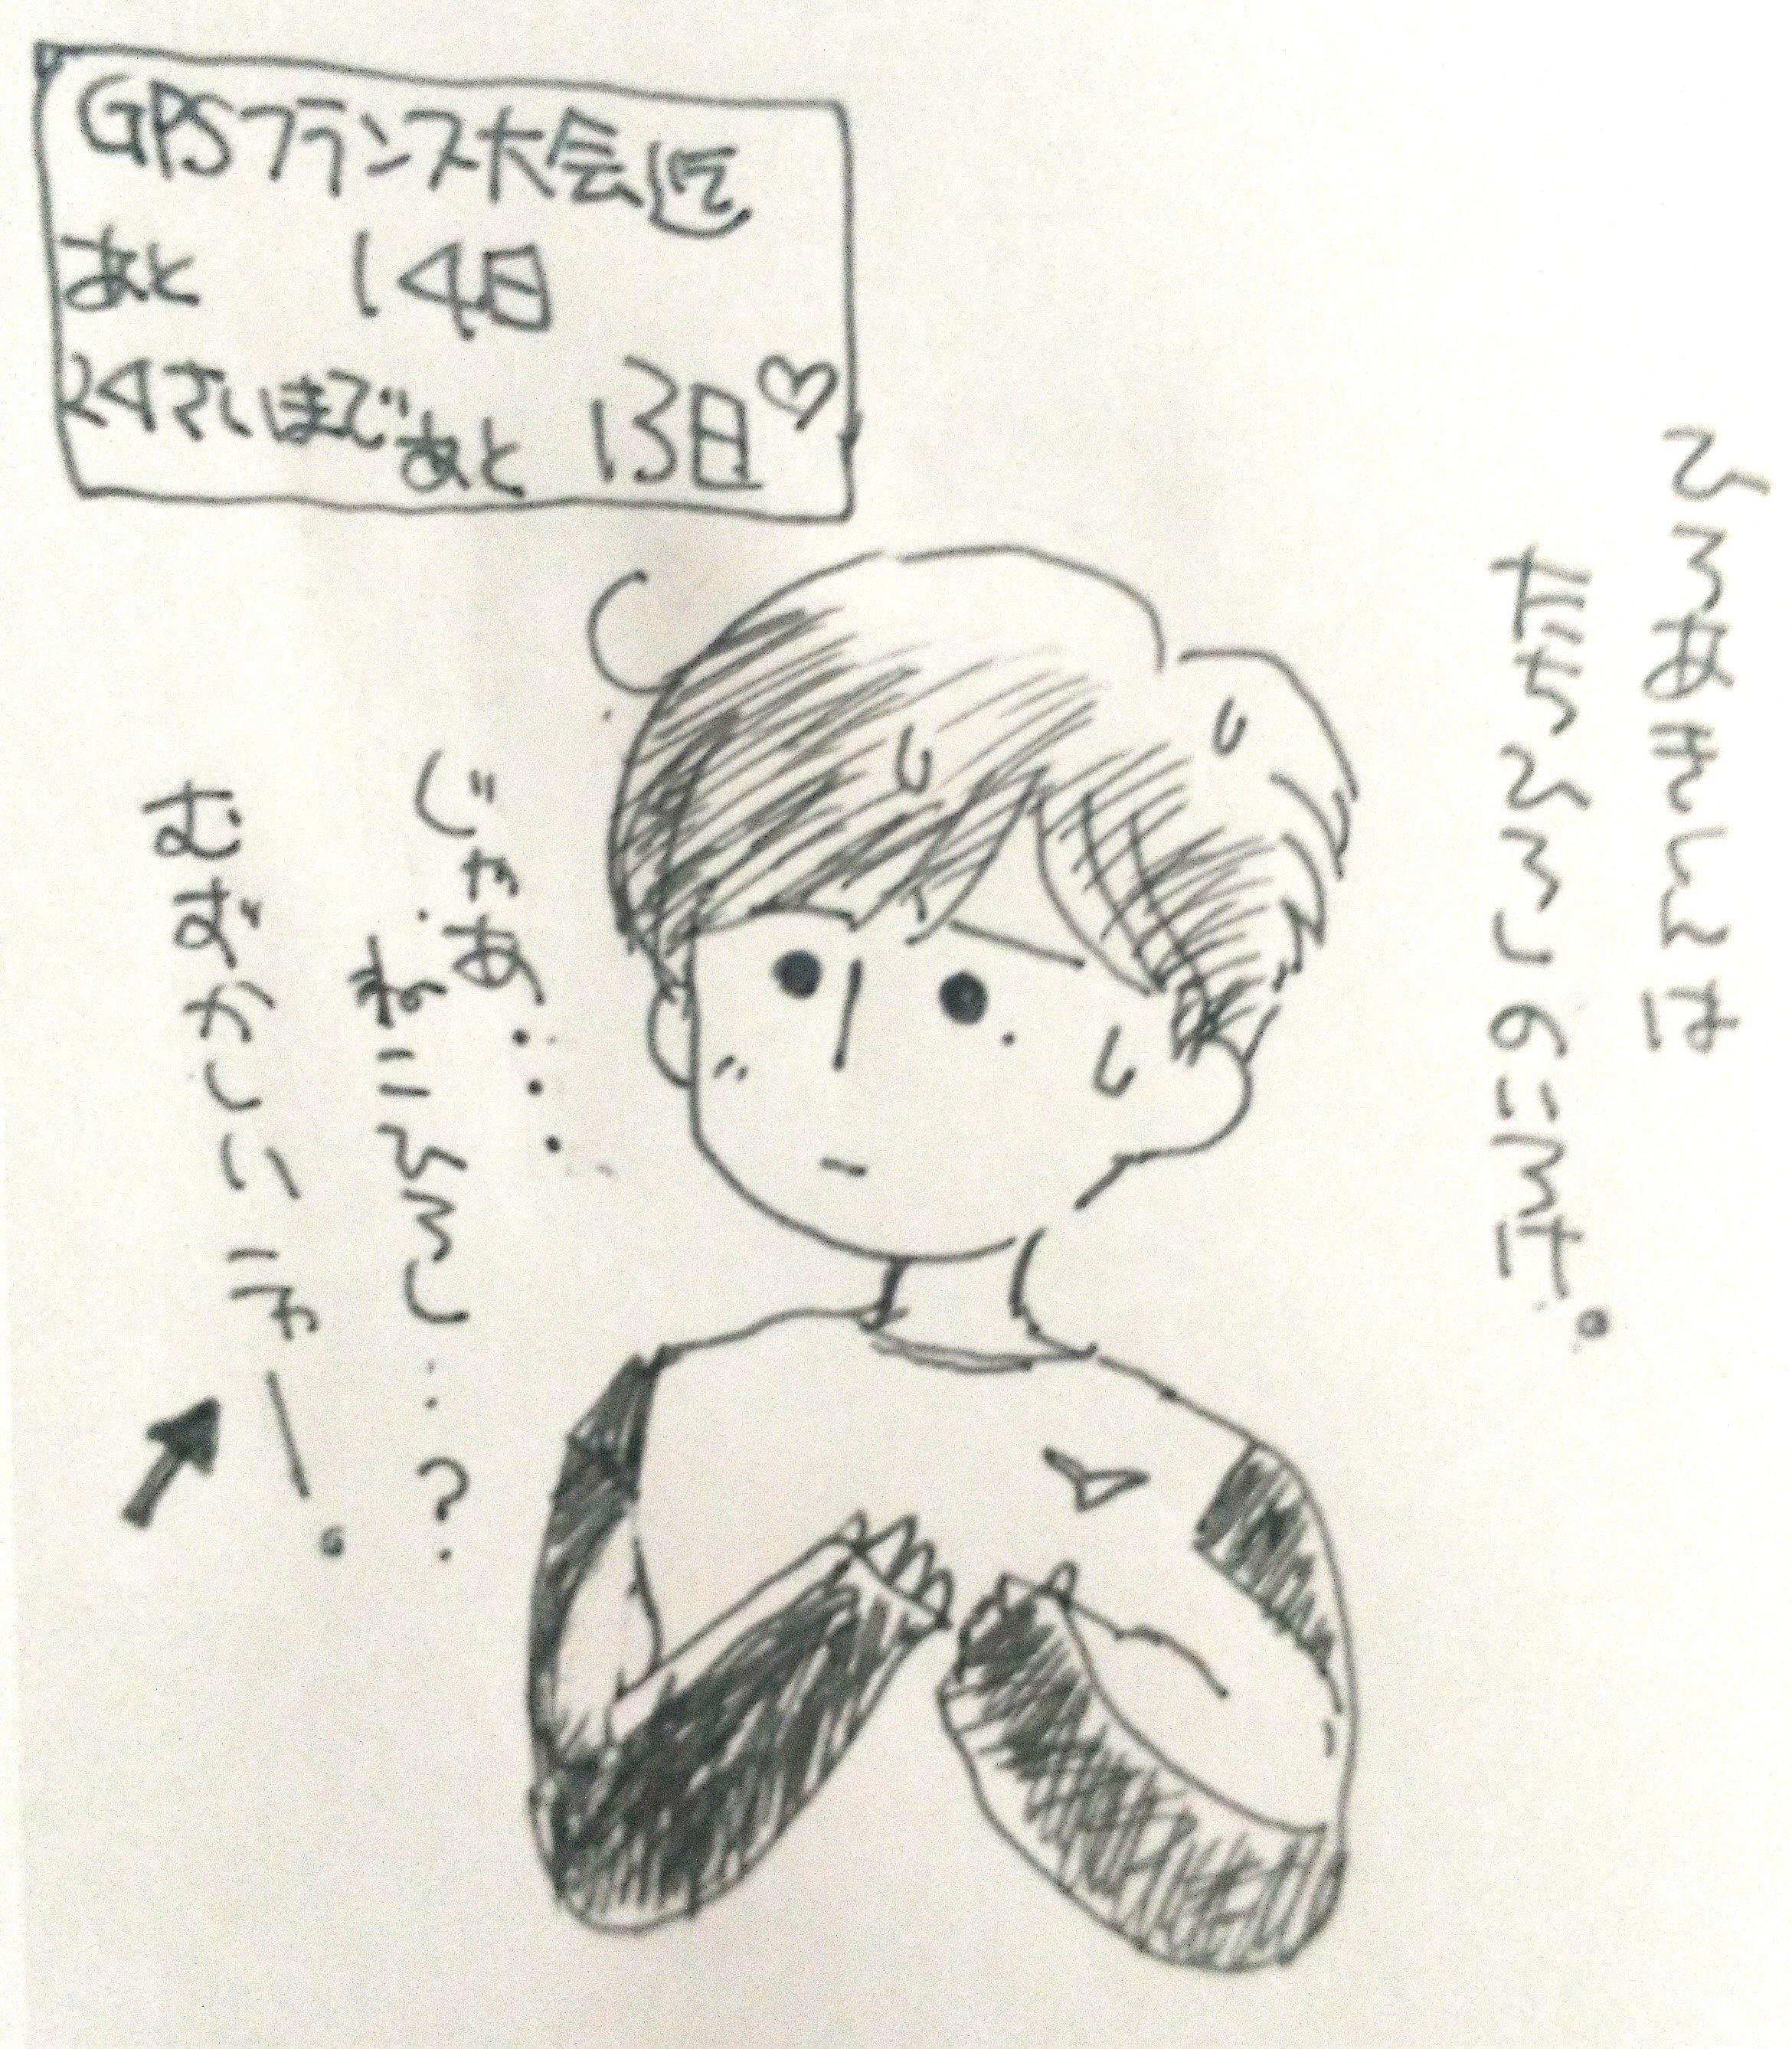 GPSフランス大会迄
あと 14日
24さいまであと 13日♡
ひろあきくんは
だちひろしのいろけ。
じゃあ・・・
ねこひろし・・?
むずかしいニャー。